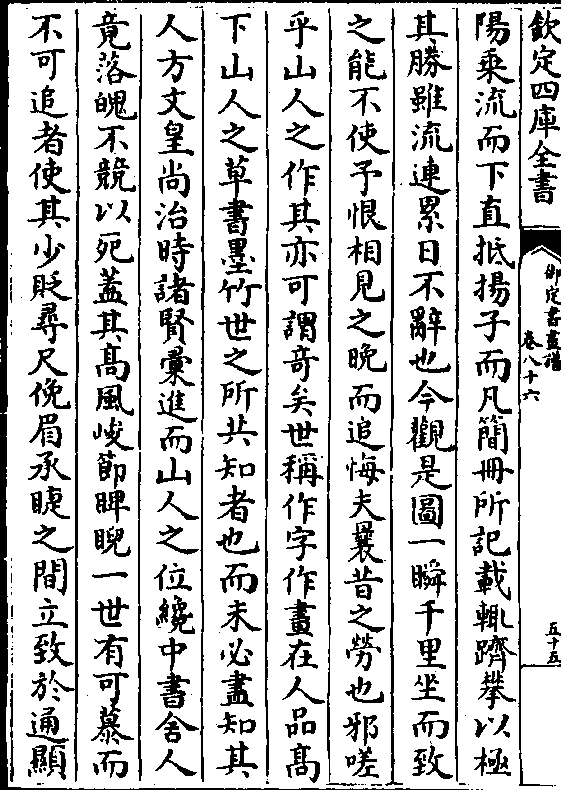 欽定四庫全書
御定書畫譜
卷八十六
五十五
陽乘流而下直抵揚子而凡簡冊所記載輒躋攀以極
其勝雖流連累日不辭也今觀是圖一瞬千里坐而致
之能不使予恨相見之晚而追悔夫曩昔之勞也邪嗟
乎山人之作其亦可謂竒矣世稱作字作畫在人品髙
下山人之草書墨竹世之所共知者也而未必盡知其
人方文皇尚治時諸賢彚進而山人之位纔中書舍人
竟落魄不競以死蓋其髙風峻節睥睨一世有可慕而
不可追者使其少貶尋尺俛眉承睫之間立致於通顯